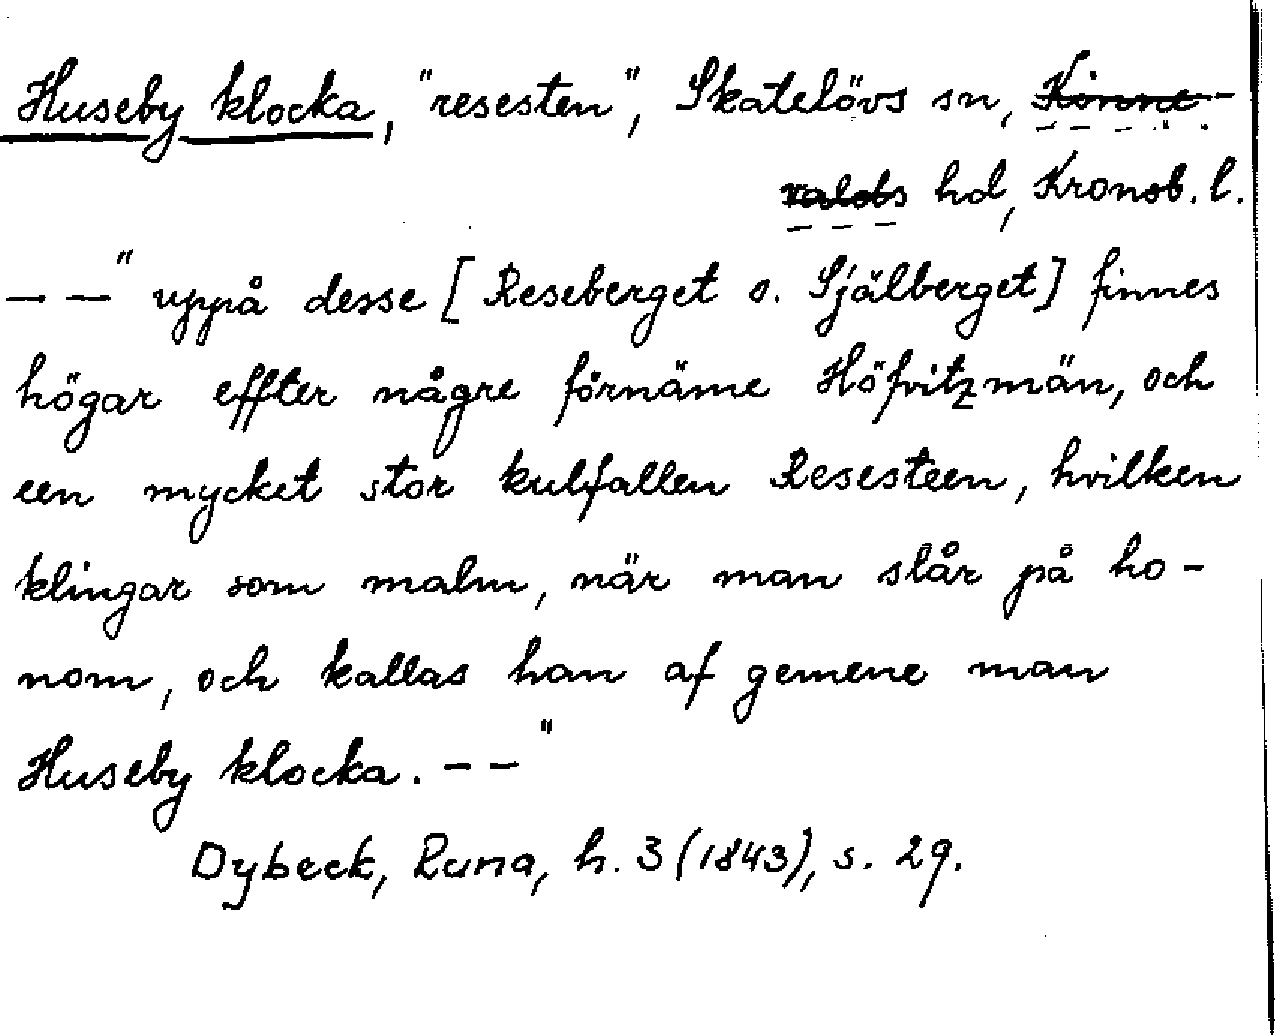 Huseby klocka, "resesten", Skatelövs sn, Kinne-
valds hd, Kronob. l.
— — " uppå desse [Reseberget o. Själberget] finnes
högar effter någre förnäme Höfvitzmän, och
een mycket stor kulfallen Resesteen, hvilken
klingar som malm, när man slår på ho-
nom, och kallas han af gemene man
Huseby klocka. — — "
Dybeck, Runa, h. 3 (1843), s. 29.